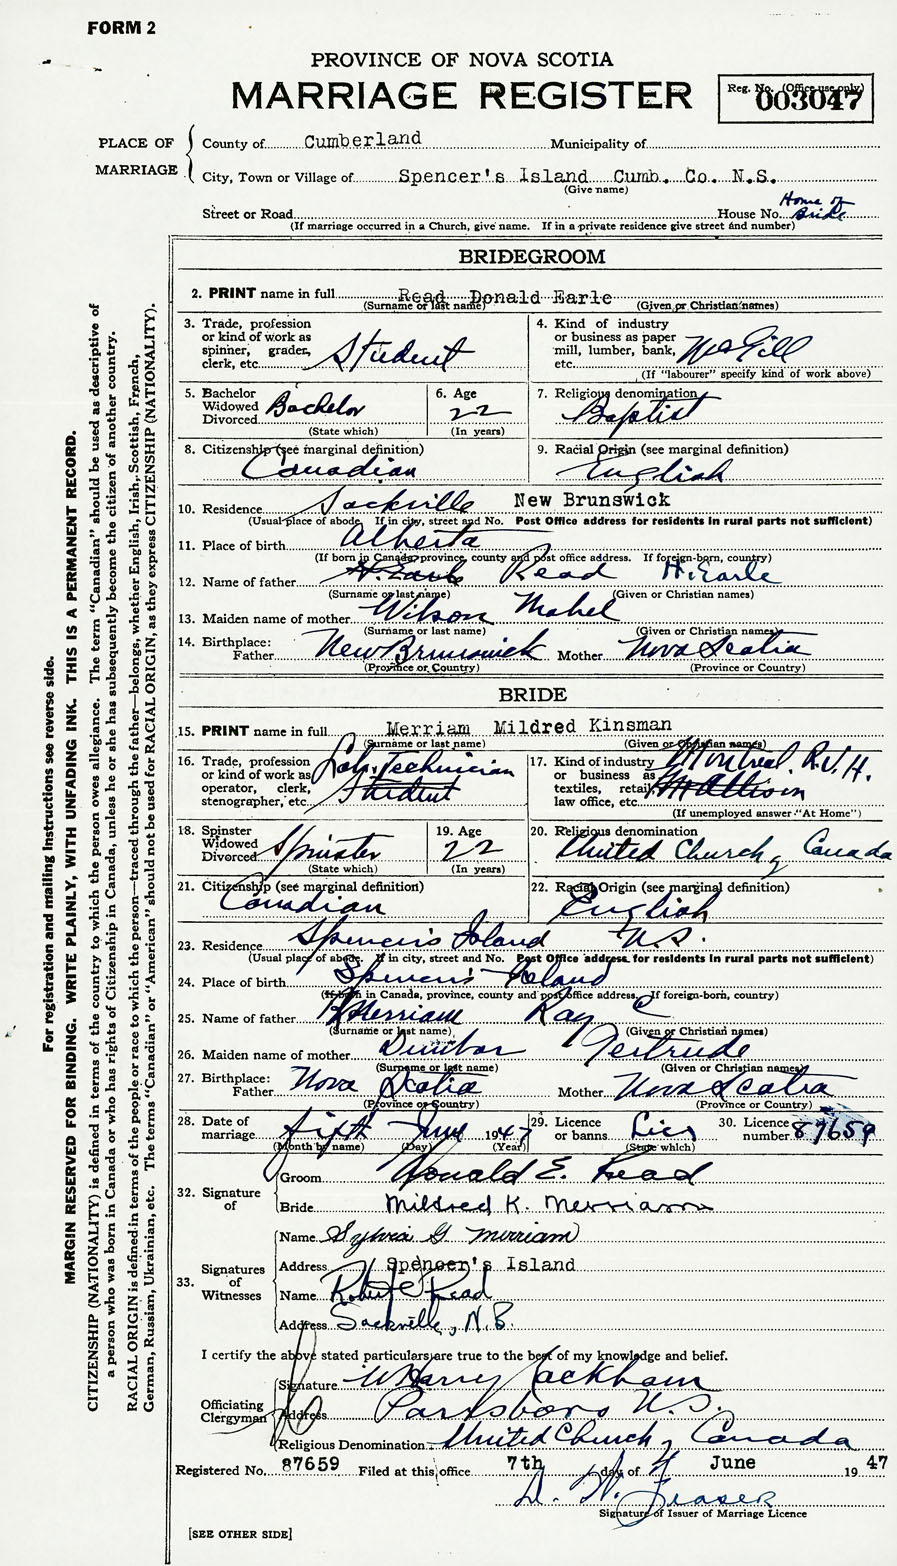 FORM 2
PROVINCE OF NOVA SCOTIA
MARRIAGE REGISTER
Reg. No. (Office use only)
003047
PLACE OF MARRIAGE
County of Cumberland Municipality of
City, Town or Village of Spencer's Island Cumb. Co. N.S.
(Give name)
Street or Road House No. Home of Bride
(If marriage occurred in a Church, give name. If in a private residence give street and number)
BRIDEGROOM
2. PRINT name in full Read Donald Earle
(Surname or last name) (Given or Christian names)
3. Trade, profession or kind of work as spinner, grader, clerk, etc. Student
4. Kind of industry or business as paper mill, lumber, bank, etc. McGill
(If "labourer" specify kind of work above)
5. Bachelor Widowed Divorced Bachelor
(State which)
6. Age 22
(In years)
7. Religious denomination Baptist
8. Citizenship (see marginal definition) Canadian
9. Racial Origin (see marginal definition) English
10. Residence Sackville New Brunswick
(Usual place of abode. If in city, street and No. Post Office address for residents in rural parts not sufficient)
11. Place of birth Alberta
(If born in Canada, province, county and post office address. If foreign-born, country)
12. Name of father H. Earle Read H. Earle
(Surname or last name) (Given or Christian names)
13. Maiden name of mother Wilson Mabel
(Surname or last name) (Given or Christian names)
14. Birthplace: Father New Brunswick Mother Nova Scotia
(Province or Country) (Province or Country)
BRIDE
15. PRINT name in full Merriam Mildred Kinsman
(Surname or last name) (Given or Christian names)
16. Trade, profession or kind of work as operator, clerk, stenographer, etc. Lab. Technician Student
17. Kind of industry or business as textiles, retail, law office, etc. Montreal. R.V.H. Mt Allison
(If unemployed answer "At Home")
18. Spinster Widowed Divorced Spinster
(State which)
19. Age 22
(In years)
20. Religious denomination United Church of Canada
21. Citizenship (see marginal definition) Canadian
22. Racial Origin (see marginal definition) English
23. Residence Spencer's Island N.S.
(Usual place of abode. If in city, street and No. Post Office address for residents in rural parts not sufficient)
24. Place of birth Spencer's Island
(If born in Canada, province, county and post office address. If foreign-born, country)
25. Name of father Merriam Ray C
(Surname or last name) (Given or Christian names)
26. Maiden name of mother Dunbar Gertrude
(Surname or last name) (Given or Christian names)
27. Birthplace: Father Nova Scotia Mother Nova Scotia
(Province or Country) (Province or Country)
28. Date of marriage fifth June 1947
(Month by name) (Day) (Year)
29. Licence or banns Lics
(State which)
30. Licence number 87659
32. Signature of
Groom Donald E. Read
Bride Mildred K. Merriam
33. Signatures of Witnesses
Name Sylvia G Merriam
Address Spencer's Island
Name Robert Read
Address Sackville, N.B.
I certify the above stated particulars are true to the best of my knowledge and belief.
Officiating Clergyman
Signature W Harry Packham
Address Parrsboro N.S.
Religious Denomination United Church of Canada
Registered No. 87659 Filed at this office 7th day of June 1947
D. W. Fraser
Signature of Issuer of Marriage Licence
[SEE OTHER SIDE]
For registration and mailing instructions see reverse side.
MARGIN RESERVED FOR BINDING. WRITE PLAINLY, WITH UNFADING INK. THIS IS A PERMANENT RECORD.
CITIZENSHIP (NATIONALITY) is defined in terms of the country to which the person owes allegiance. The term "Canadian" should be used as descriptive of
a person who was born in Canada or who has rights of Citizenship in Canada, unless he or she has subsequently become the citizen of another country.
RACIAL ORIGIN is defined in terms of the people or race to which the person—traced through the father—belongs, whether English, Irish, Scottish, French,
German, Russian, Ukrainian, etc. The terms "Canadian" or "American" should not be used for RACIAL ORIGIN, as they express CITIZENSHIP (NATIONALITY).